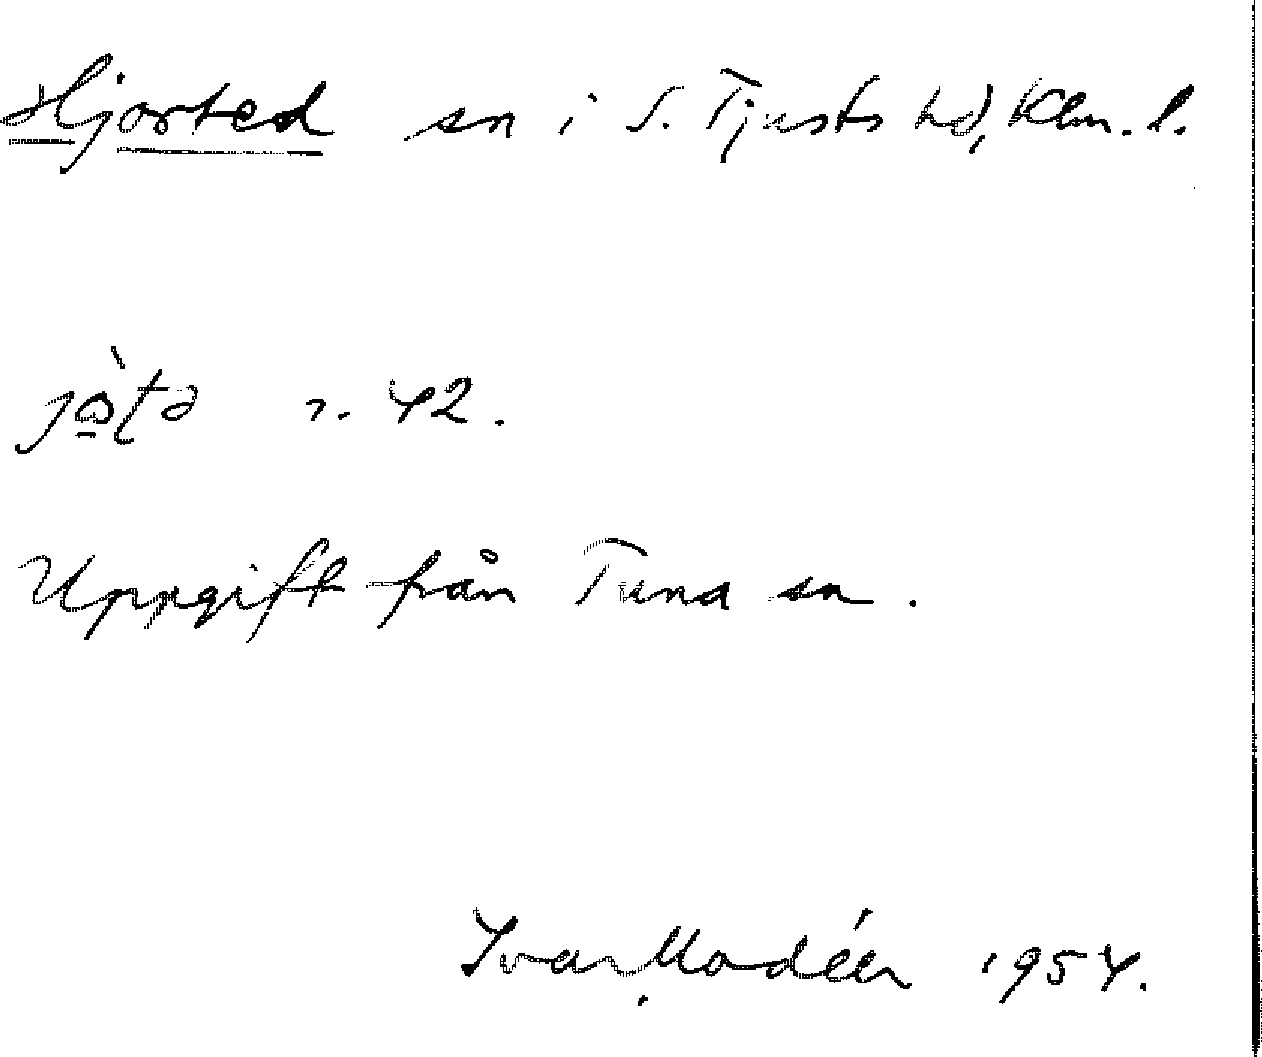 Hjorted sn i S. Tjusts hd, Klm. l.
42.
Uppgift från Tuna sn.
Ivar Modéer 1954.